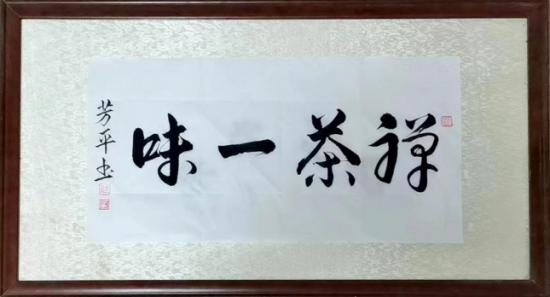 禅茶一味
芳平书